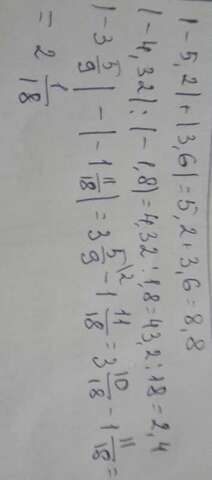 |-5,2|+|3,6|=5,2+3,6=8,8
|-4,32|:|-1,8|=4,32:1,8=43,2:18=2,4
|-3 5/9|-|-1 11/18|=3 5\2/9-1 11/18=3 10/18-1 11/18=
=2 1/18